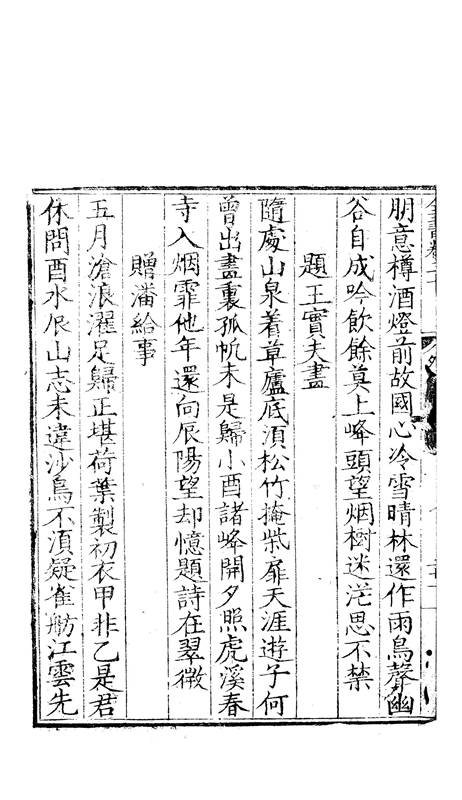 朋意樽酒燈前故國心冷雪晴林還作雨鳥聲幽
谷自成吟飲餘莫上峰頭望烟樹迷茫思不禁
題王實夫畫
隨處山泉着草廬底須松竹掩柴扉天涯遊子何
曾出畫裏孤帆未是歸小酉諸峰開夕照虎溪春
寺入烟霏他年還向辰陽望却憶題詩在翠微
贈潘給事
五月滄浪濯足歸正堪荷葉製初衣甲非乙是君
休問酉水辰山志未違沙鳥不須疑雀舫江雲先